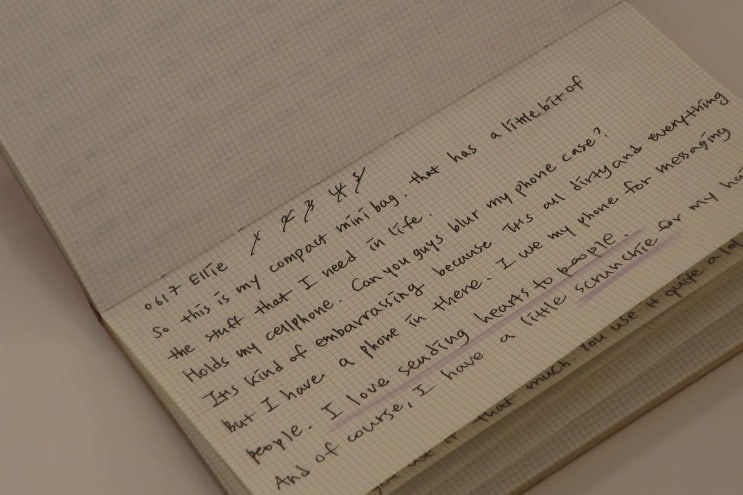 0617 Ellie 1 2 3 4 5
So this is my compact mini bag. that has a little bit of
the stuff that I need in life.
Holds my cellphone. Can you guys blur my phone case?
It's kind of embarrassing because It's all dirty and everything
but I have a phone in there. I use my phone for messaging
people. I love sending hearts to people.
And of course, I have a little scrunchie for my hair
use it that much You use it quite a lot